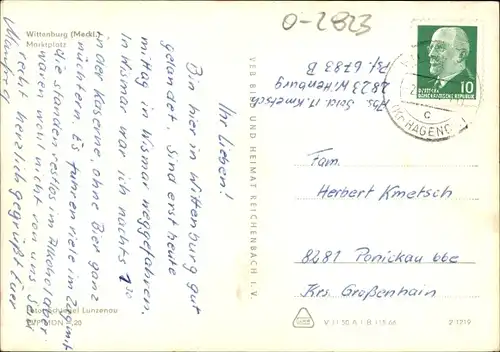 Wittenburg (Meckl.)
Marktplatz
Ihr Lieben!
Bin hier in Wittenburg gut
gelandet. Sind erst heute
mittag in Wismar weggefahren.
In Wismar war ich nachts 1³⁰
in der Kaserne, ohne Bier ganz
nüchtern. Es fuhren viele im Zug mit
die standen restlos im Alkohol aber
waren wohl nicht von uns. Seid
recht herzlich gegrüßt Euer
Manfred
VEB BILD UND HEIMAT REICHENBACH I. V.
O-2823
Abs. Sold. M. Kmetsch
2823 Wittenburg
Pf. 6783 B
DEUTSCHE
DEMOKRATISCHE REPUBLIK
10
c
HAGENOW
Fam.
Herbert Kmetsch
8281 Ponickau
Krs. Großenhain
Lunzenau